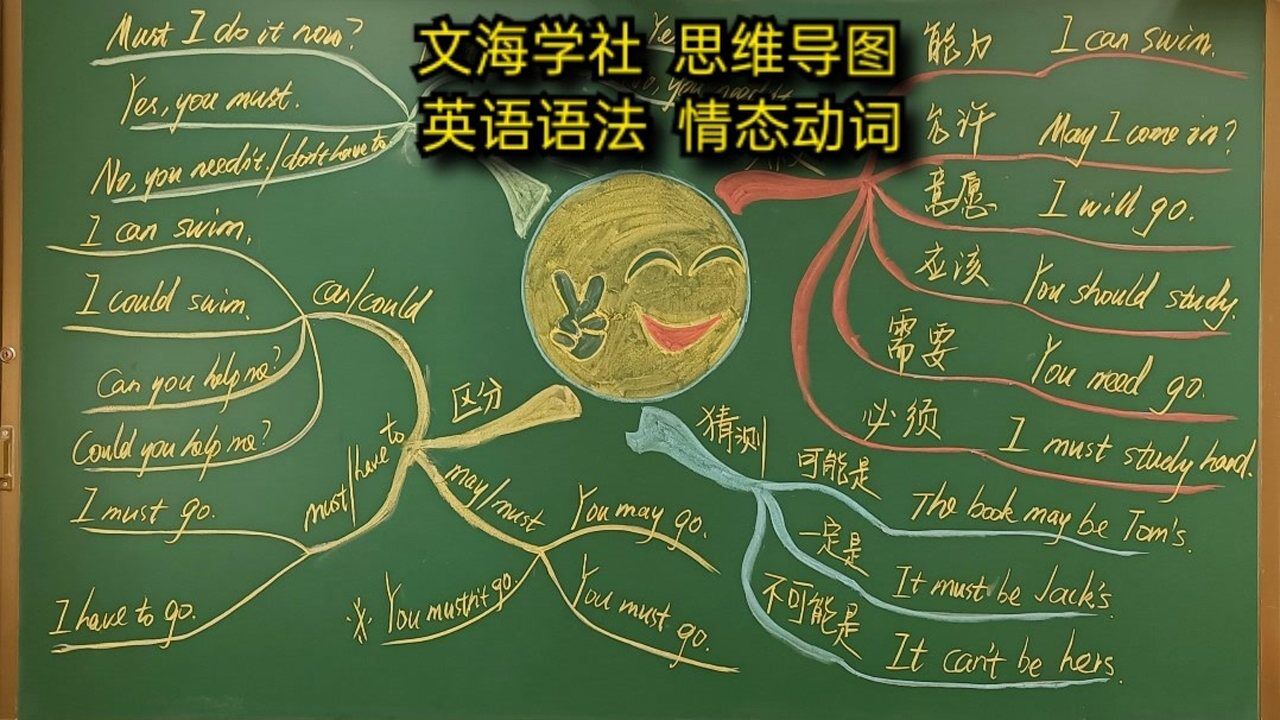 文海学社 思维导图
英语语法 情态动词
Must I do it now?
Yes, you must.
No, you needn't./don't have to
区分
can/could
I can swim.
I could swim.
Can you help me?
Could you help me?
must/have to
I must go.
I have to go.
may/must
You may go.
You must go.
※ You mustn't go.
能力 I can swim.
允许 May I come in?
意愿 I will go.
应该 You should study.
需要 You need go.
必须 I must study hard.
猜测
可能是 The book may be Tom's.
一定是 It must be Jack's.
不可能是 It can't be hers.